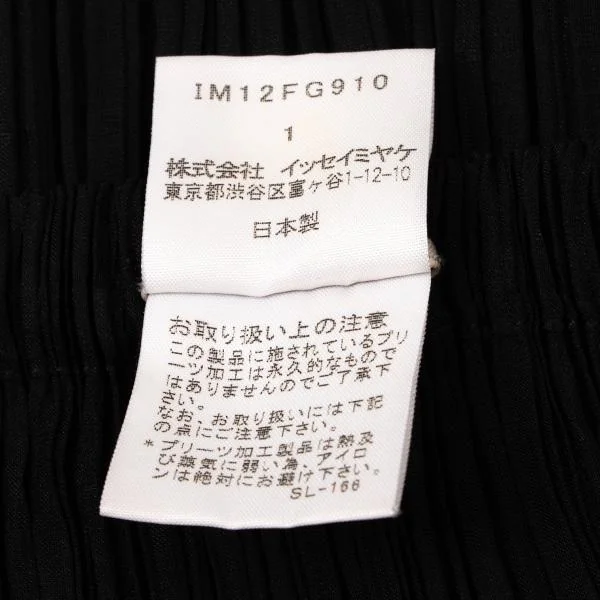 IM12FG910
1
株式会社 イッセイミヤケ
東京都渋谷区富ヶ谷1-12-10
日本製
お取り扱い上の注意
この製品に施されているプリ
ーツ加工は永久的なもので
はありませんのでご了承下
さい。
なお、お取り扱いには下記
の点にご注意下さい。
*プリーツ加工製品は熱及
び蒸気に弱い為、アイロ
ンは絶対にお避け下さい。
SL-166